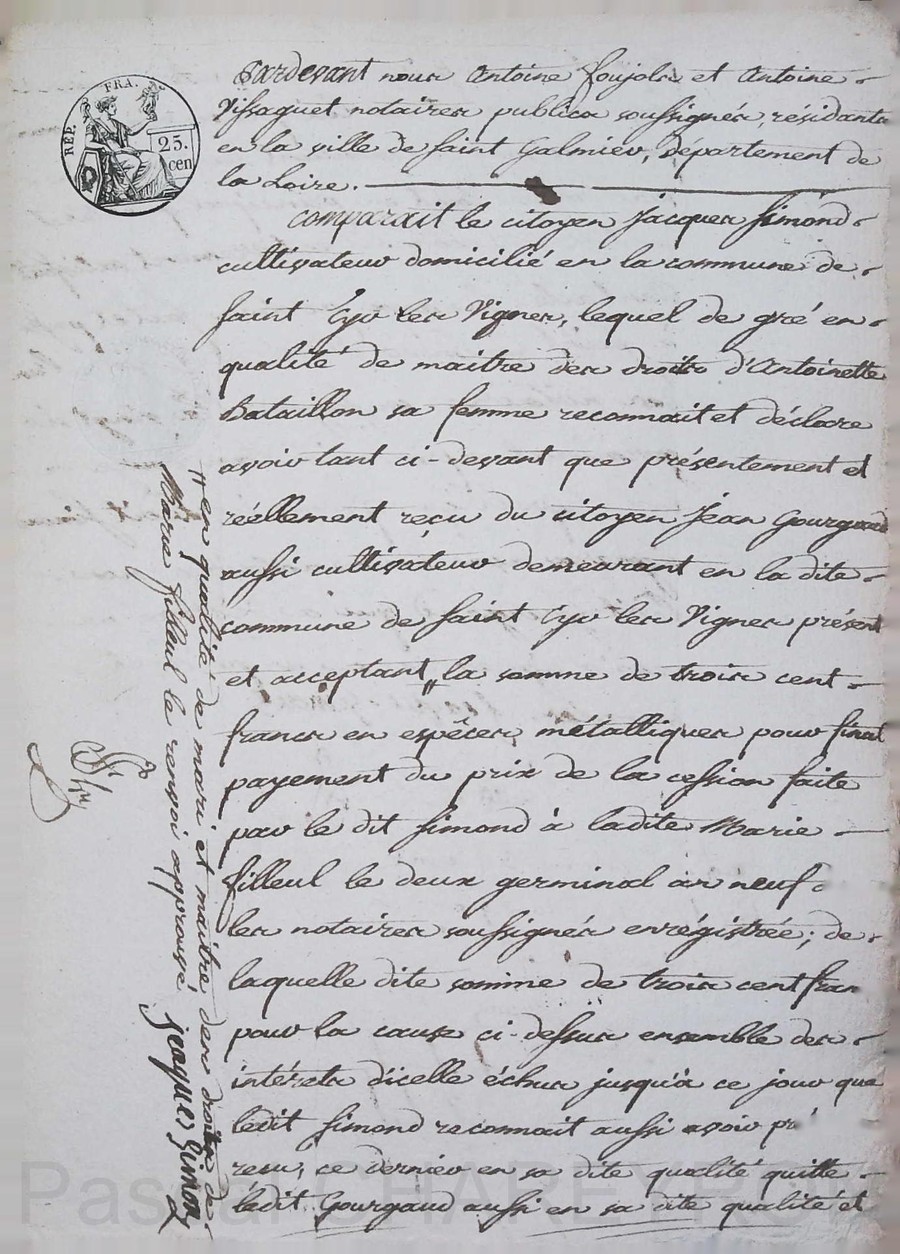 RÉP. FRA.
25.
cen
Pardevant nous Antoine Poujols et Antoine
Vissaguet notaires publics soussignés, residants
en la ville de Saint Galmier, département de
la Loire.
comparait le citoyen Jacques Simond
cultivateur domicilié en la commune de
Saint Cyr les Vignes, lequel de gré en
qualité de maitre des droits d'Antoinette
Bataillon sa femme reconnait et déclare
avoir tant ci-devant que présentement et
réellement reçu du citoyen Jean Gourgaud
aussi cultivateur demeurant en la dite
commune de Saint Cyr les Vignes présent
et acceptant " la somme de trois cent
francs en espèces métalliques pour final
payement du prix de la cession faite
par le dit Simond à ladite Marie
filleul le deux germinal an neuf
les notaires soussignés enrégistrée; de
laquelle dite somme de trois cent fran
pour la cause ci-dessus ensemble des
intérets d'icelle échus jusqu'à ce jour que
ledit Simond reconnait aussi avoir
resu, ce dernier en sa dite qualité quitte
ledit Gourgaud aussi en sa dite qualité et
" en qualité de mari et maitre des droits de
Marie filleul le renvoi approuvé Jacques Simon
Pascal CHAREYRON